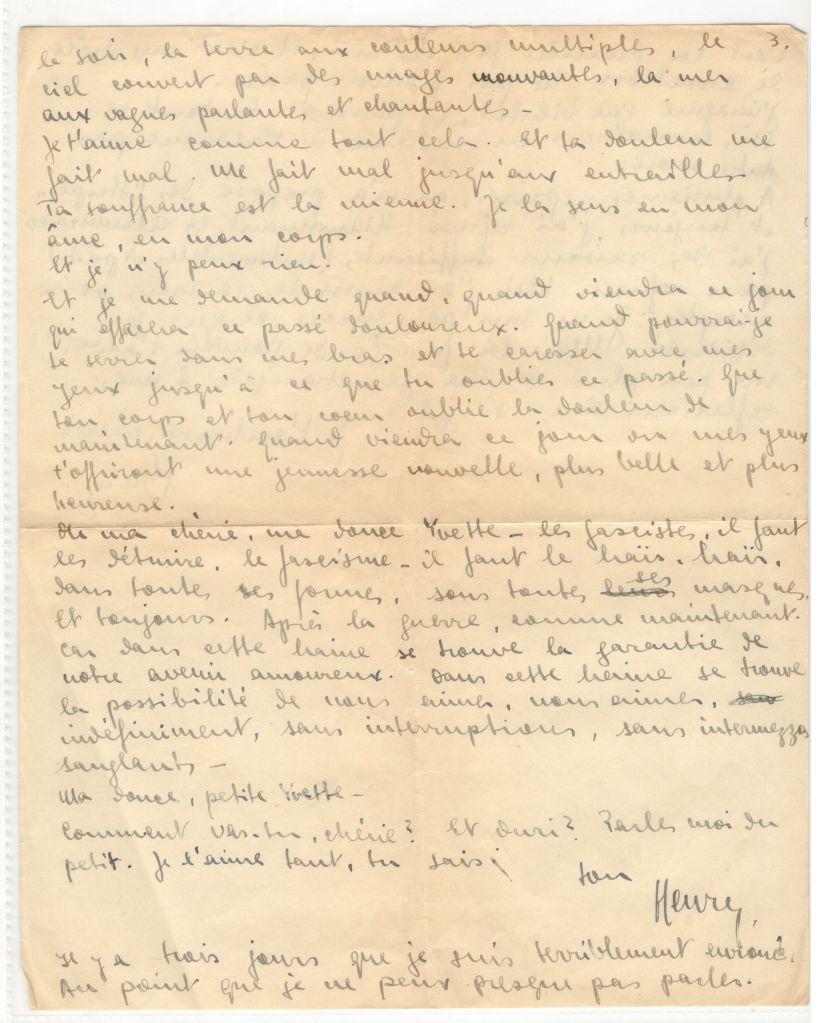 3.
le soir, la terre aux couleurs multiples, le
ciel couvert par des nuages mouvantes, la mer
aux vagues parlantes et chantantes -
Je t'aime comme tout cela. Et ta douleur me
fait mal. Me fait mal jusqu'aux entrailles.
Ta souffrance est la mienne. Je la sens en mon
âme, en mon corps.
Et je n'y peux rien.
Et je me demande quand, quand viendra ce jour
qui effacera ce passé douloureux. Quand pourrai-je
te serrer dans mes bras et te caresser avec mes
yeux jusqu'à ce que tu oublies ce passé. Que
ton corps et ton coeur oublie la douleur de
maintenant. Quand viendra ce jour ou mes yeux
t'offriront une jeunesse nouvelle, plus belle et plus
heureuse.
Oh ma chérie, ma douce Yvette - les fascistes, il faut
les détruire, le fascisme - il faut le haïr, haïr,
dans toutes ses formes, sous toutes leurs ses masques.
Et toujours. Après la guerre, comme maintenant.
Car dans cette haine se trouve la garantie de
notre avenir amoureux. Dans cette haine se trouve
la possibilité de nous aimer, nous aimer,
indéfiniment, sans interruptions, sans intermezzos
sanglants -
Ma douce, petite Yvette -
Comment vas-tu, chérie? Et Ouri? Parles moi du
petit. Je l'aime tant, tu sais!
ton
Henry.
Il y a trois jours que je suis terriblement enroué.
Au point que je ne peux presque pas parler.